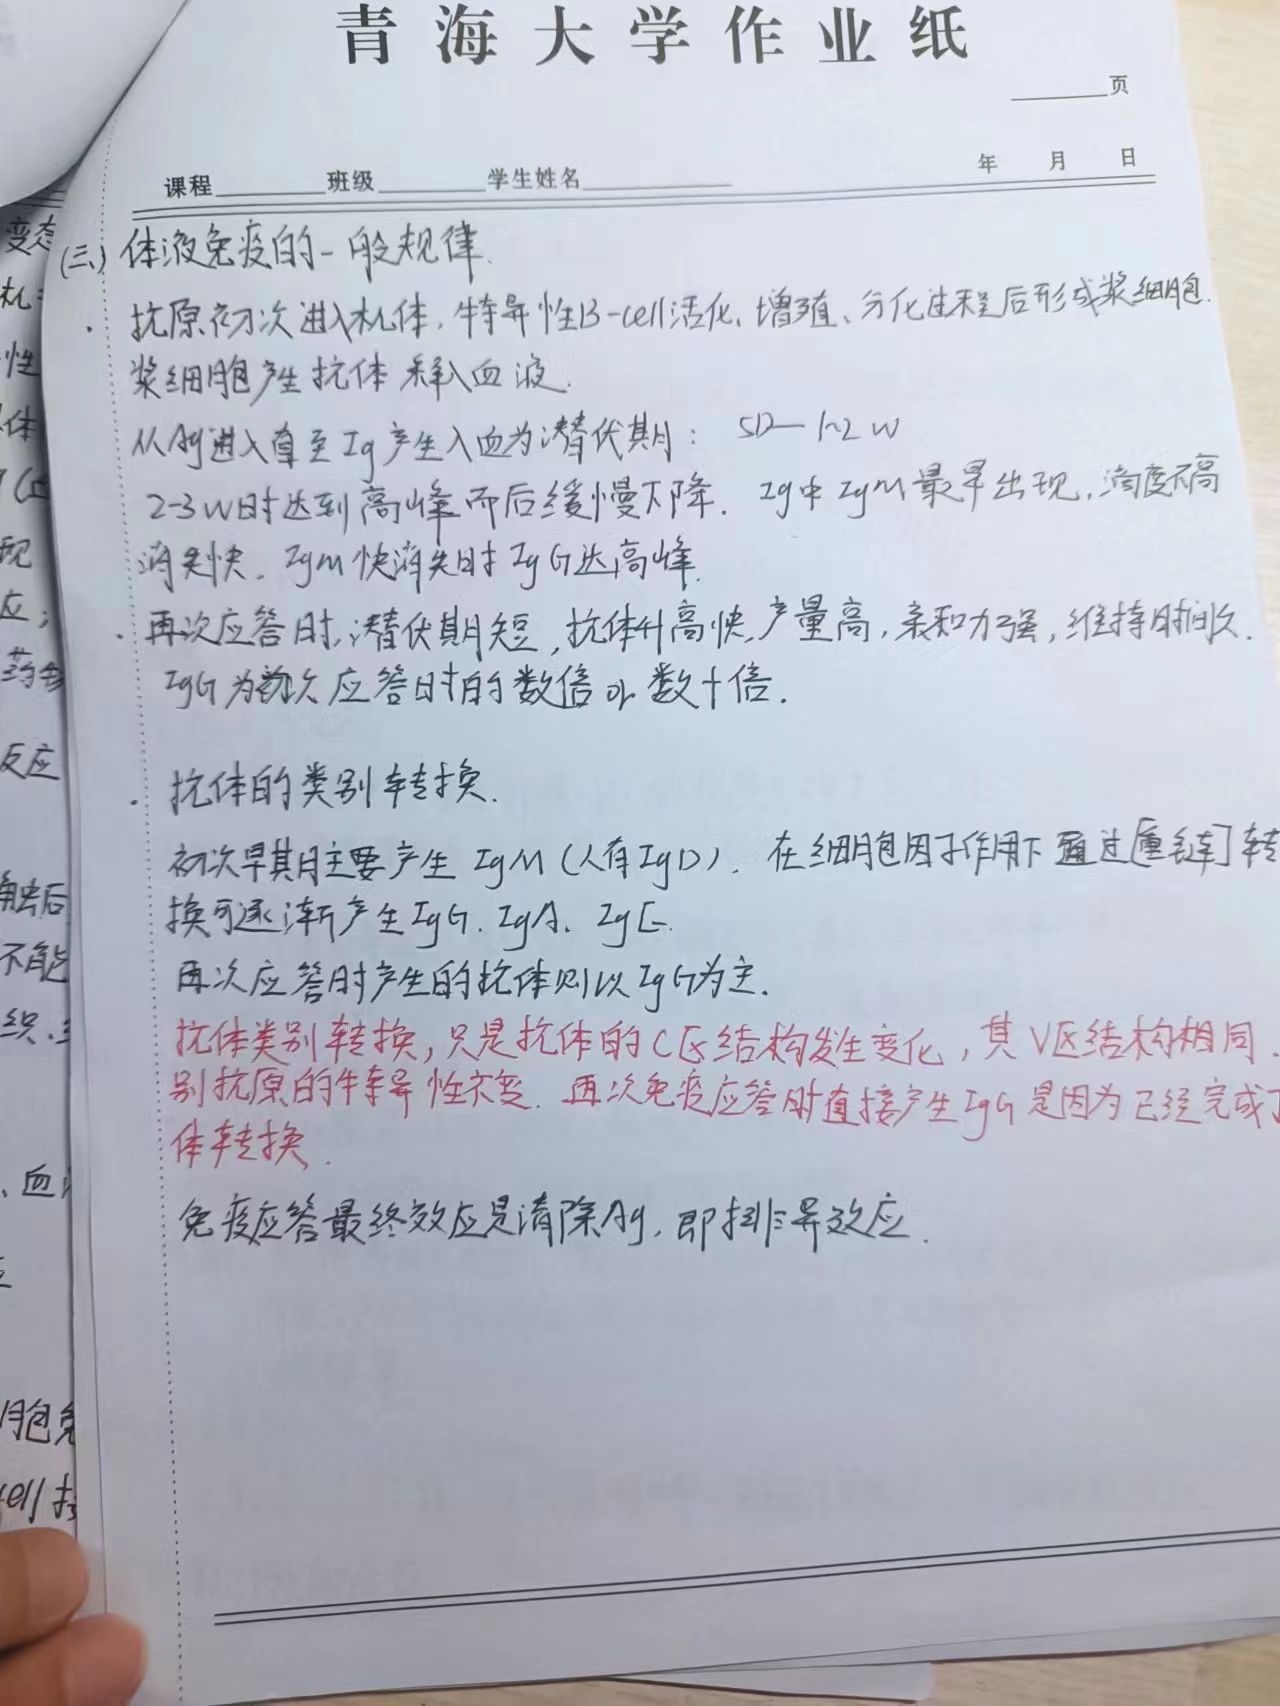 青海大学作业纸
页
课程 班级 学生姓名 年 月 日
(三) 体液免疫的一般规律.
· 抗原初次进入机体, 特异性B-cell活化、增殖、分化过程后形成浆细胞.
浆细胞产生抗体 释入血液.
从Ag进入直至Ig产生入血为潜伏期: 5D—1~2w
2-3w时达到高峰而后缓慢下降. Ig中IgM最早出现, 滴度不高
消失快. IgM快消失时IgG达高峰.
· 再次应答时, 潜伏期短, 抗体升高快, 产量高, 亲和力强, 维持时间久.
IgG为初次应答时的数倍or数十倍.
· 抗体的类别转换.
初次早期主要产生IgM (人有IgD). 在细胞因子作用下通过[重链]转
换可逐渐产生IgG. IgA. IgE.
再次应答时产生的抗体则以IgG为主.
抗体类别转换, 只是抗体的C区结构发生变化, 其V区结构相同.
别抗原的特异性不变. 再次免疫应答时直接产生IgG是因为已经完成了
体转换.
免疫应答最终效应是清除Ag, 即排异效应.
变态
机
性
体
现
应;
药
反应
触后
不能
织.
、血
胞免
cell